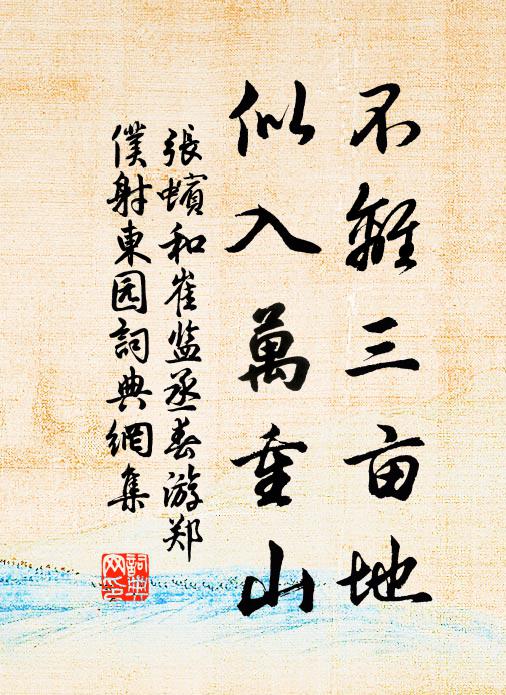 不離三亩地
似入萬重山
張蠙和崔监丞春游郑
僕射東园詞典網集
詞典
网